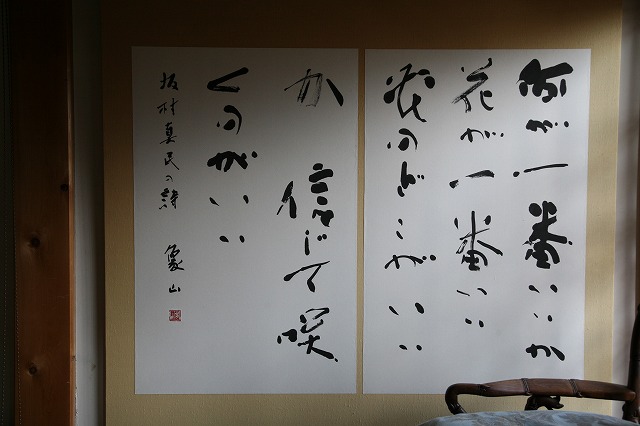 何が一番いいか
花が一番いい
花のどこがいい
か 信じて咲
くのがいい
坂村真民の詩 象山